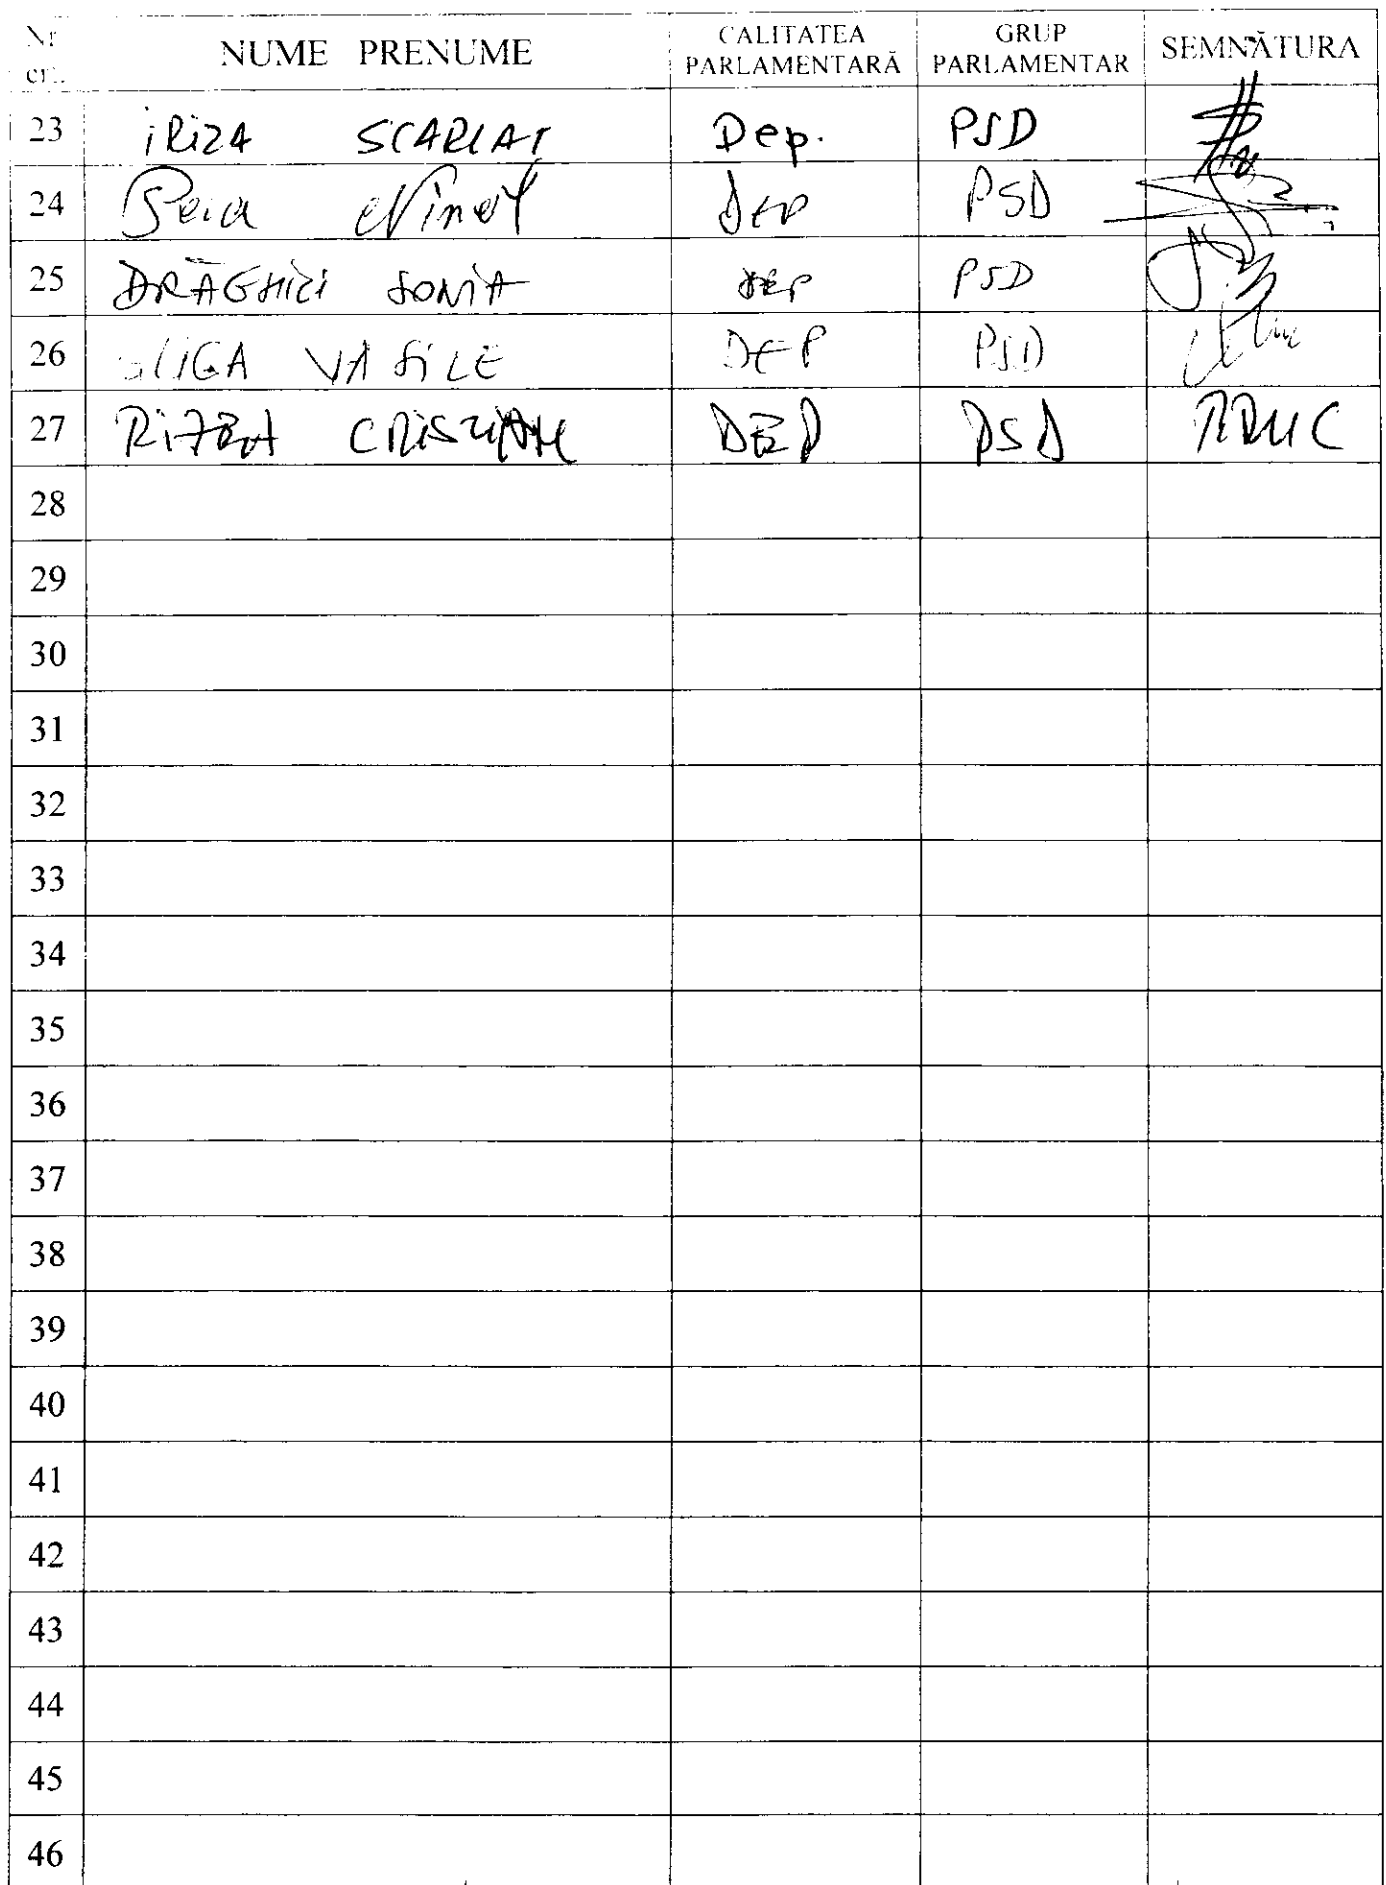 Nr. crt. NUME PRENUME CALITATEA PARLAMENTARĂ GRUP PARLAMENTAR SEMNĂTURA
23 iRiZA SCARLAT Dep. PSD
24 Peia Ninel DEP PSD
25 DRĂGHICI SONIA DEP PSD
26 VASILE DEP PSD
27 CRISTIAN DEP PSD
28
29
30
31
32
33
34
35
36
37
38
39
40
41
42
43
44
45
46